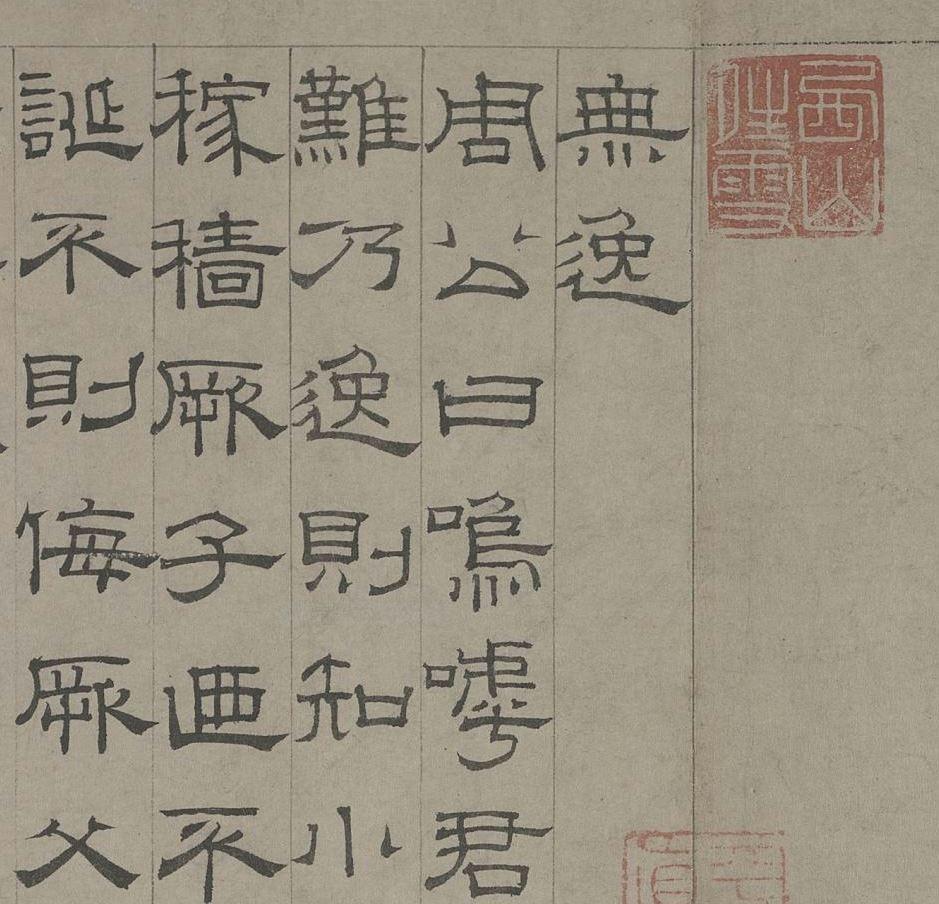 無逸
周公曰嗚嘑君
難乃逸則知小
稼穡厥子迺不
誕不則侮厥父